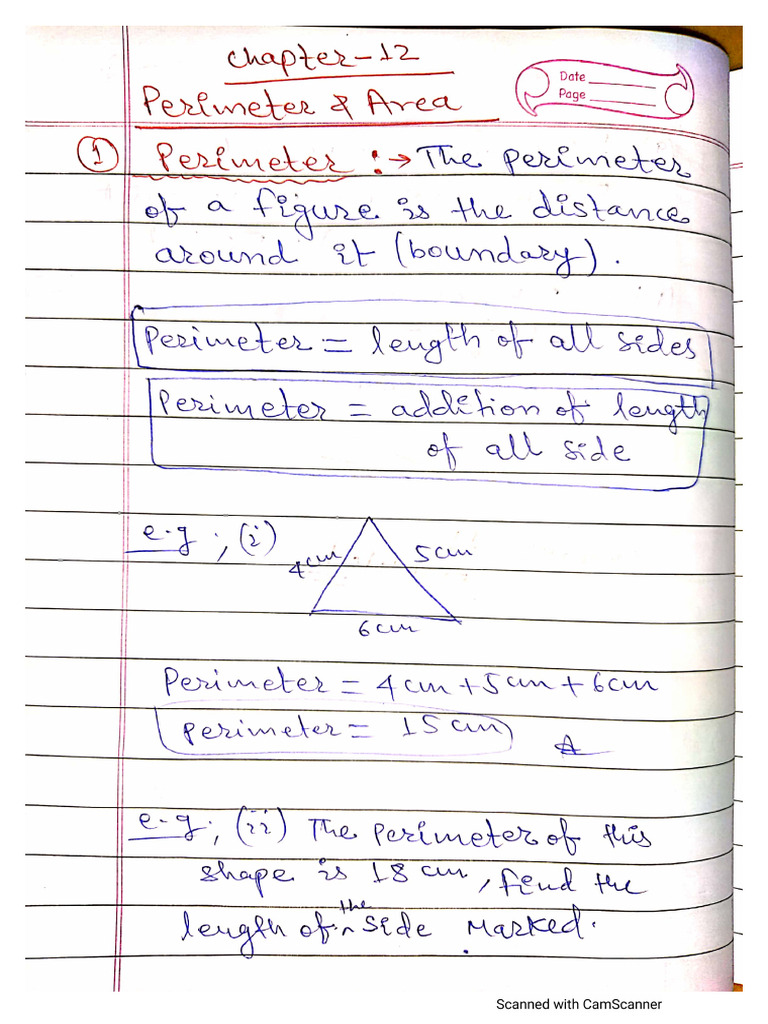 Chapter-12
Perimeter & Area
Date
Page
① Perimeter :→ The perimeter
of a figure is the distance
around it (boundary).
Perimeter = length of all sides
Perimeter = addition of length
of all side
e.g ; (i)
4cm 5cm
6cm
Perimeter = 4cm + 5cm + 6cm
perimeter = 15cm
e.g ; (ii) The perimeter of this
shape is 18 cm, find the
length of the side marked.
Scanned with CamScanner